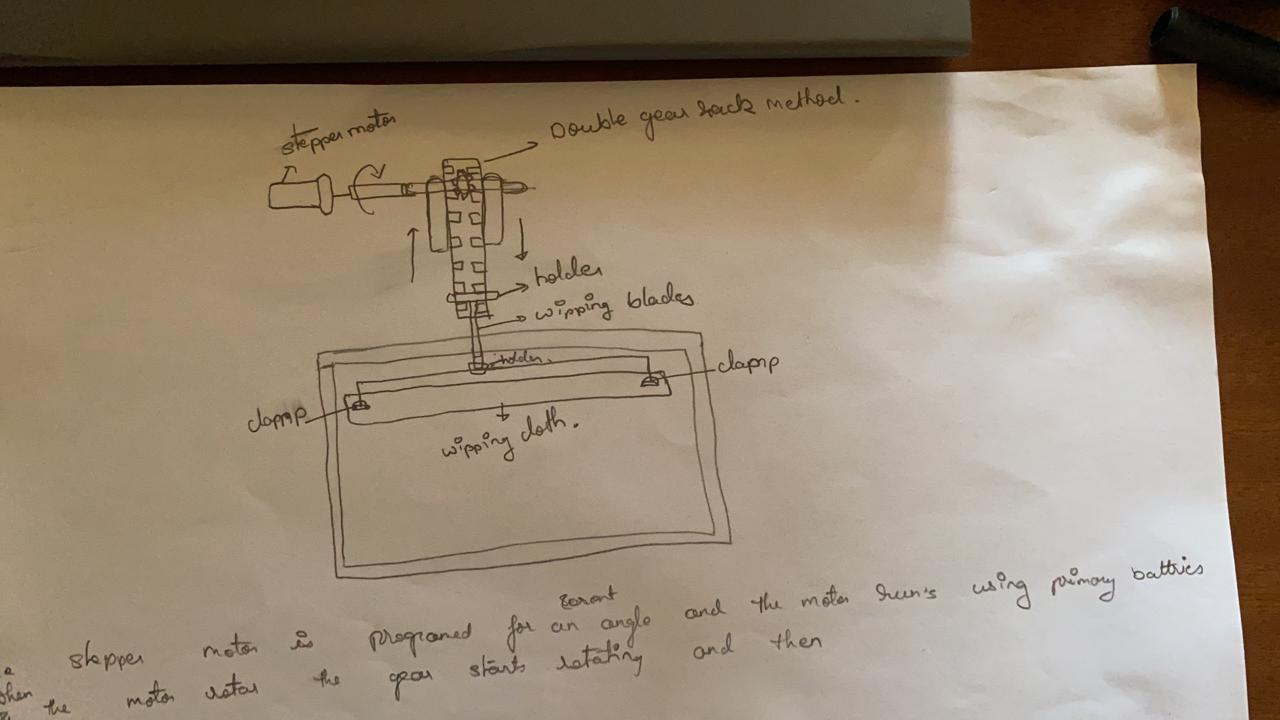 stepper motor
Double gear rack method.
holder
wipping blades
holder.
clamp
clamp
wipping cloth.
stepper motor is programed for an angle and the motor run's using primary battries
the motor rotas the gear starts rotating and then